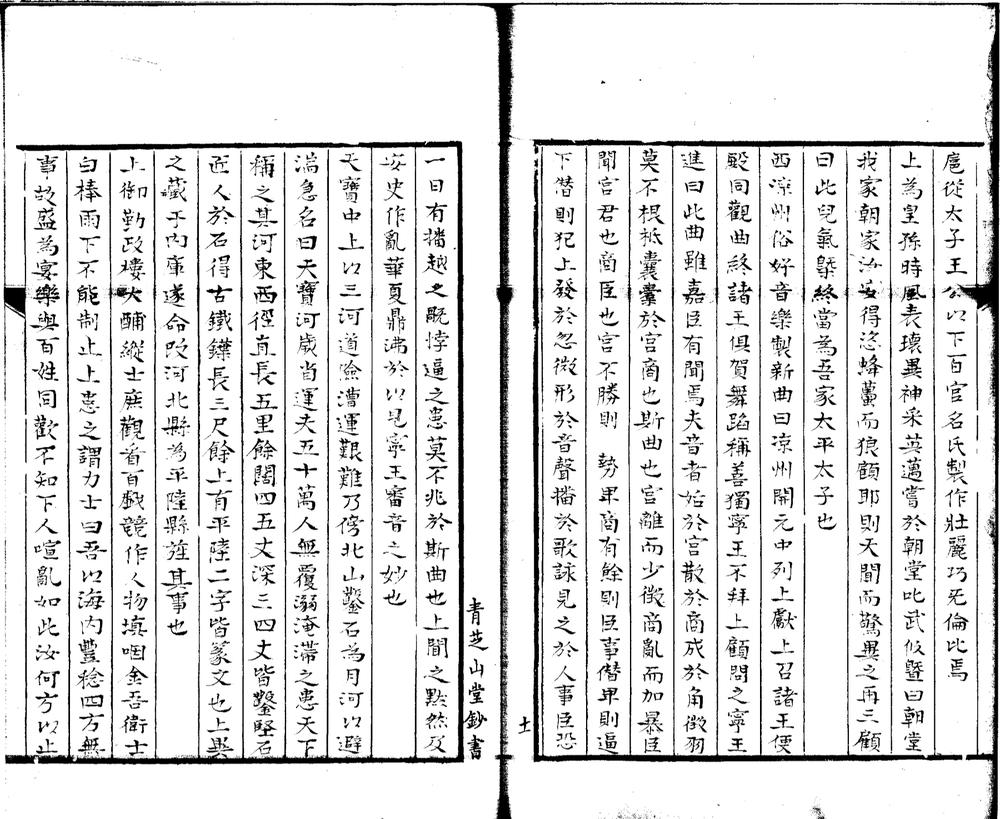 扈從太子王公以下百官名氏製作壯麗巧无倫比焉
上為皇孫時風表瓌異神采英邁嘗於朝堂叱武攸暨曰朝堂
我家朝家汝安得恣蜂蠆而狼顧耶則天聞而驚異之再三顧
曰此兒氣槩終當為吾家太平太子也
西凉州俗好音樂製新曲曰凉州開元中列上獻上召諸王便
殿同觀曲終諸王俱賀舞蹈稱善獨寧王不拜上顧問之寧王
進曰此曲雖嘉臣有聞焉夫音者始於宮散於商成於角徵羽
莫不根柢囊橐於宮商也斯曲也宮離而少徵商亂而加暴臣
聞宮君也商臣也宮不勝則 勢卑商有餘則臣事僭卑則逼
下僭則犯上發於忽微形於音聲播於歌詠見之於人事臣恐
十一
一日有播越之眂悖逼之患莫不兆於斯曲也上聞之黙然及
安史作亂華夏鼎沸於以見寧王審音之妙也
天寶中上以三河道險漕運艱難乃傍北山鑿石為月河以避
湍急名曰天寶河歲省運夫五十萬人無覆溺淹滯之患天下
稱之其河東西徑直長五里餘闊四五丈深三四丈皆鑿堅石
匠人於石得古鐵鏵長三尺餘上有平陸二字皆篆文也上異
之藏于內庫遂命改河北縣為平陸縣旌其事也
上御勤政樓大酺縱士庶觀看百戲競作人物填咽金吾衛士
白棒雨下不能制止上患之謂力士曰吾以海內豐稔四方無
事故盛為宴樂與百姓同歡不知下人喧亂如此汝何方以止
青芝山堂鈔書